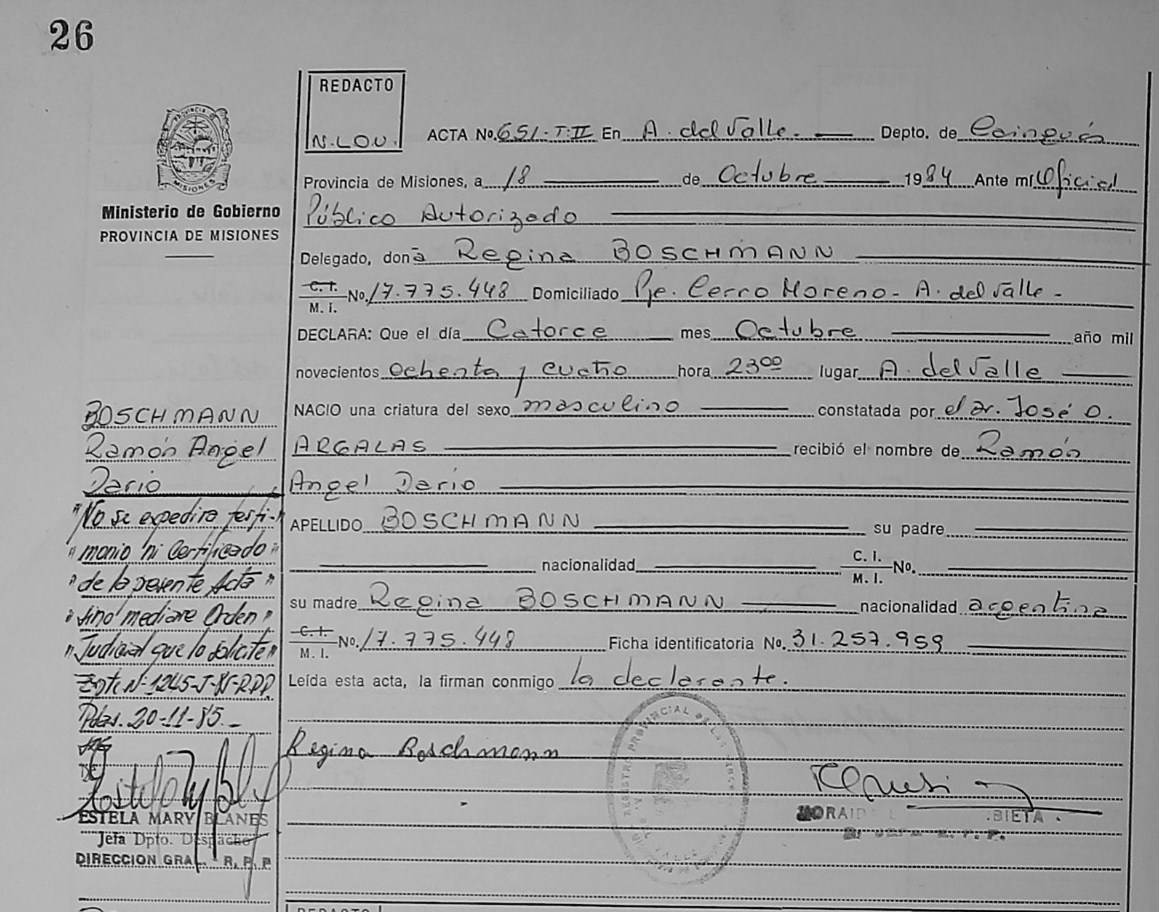 26
REDACTO
N.LOV.
ACTA No. 651-T:II En A. del Valle. Depto. de Cainguás
Provincia de Misiones, a 18 de Octubre 1984 Ante mí Oficial
Público Autorizado
Delegado, doña Regina BOSCHMANN
C. I. M. I. No. 17.775.448 Domiciliado Pje. Cerro Moreno - A. del Valle -
DECLARA: Que el día Catorce mes Octubre año mil
novecientos ochenta y cuatro hora 23 00 lugar A. del Valle
NACIO una criatura del sexo masculino constatada por el dr. José O.
ARGALAS recibió el nombre de Ramón
Angel Dario
APELLIDO BOSCHMANN su padre
nacionalidad C. I. M. I. No.
su madre Regina BOSCHMANN nacionalidad argentina
C. I. M. I. No. 17.775.448 Ficha identificatoria No. 31.257.959
Leída esta acta, la firman conmigo la declarante.
Regina Boschmann
PROVINCIA DE MISIONES
Ministerio de Gobierno
PROVINCIA DE MISIONES
BOSCHMANN
Ramón Angel
Dario
"No se expedira testi-"
"monio ni Certificado"
"de la presente Acta"
"sino mediare Orden"
"Judicial que lo solicite"
Expte Nº 1245-J-85-RPP
Pdas. 20-11-85.-
ESTELA MARY BLANES
Jefa Dpto. Despacho
DIRECCION GRAL. R. P. P.
REGISTRO PROVINCIAL DE LAS
REDACTO